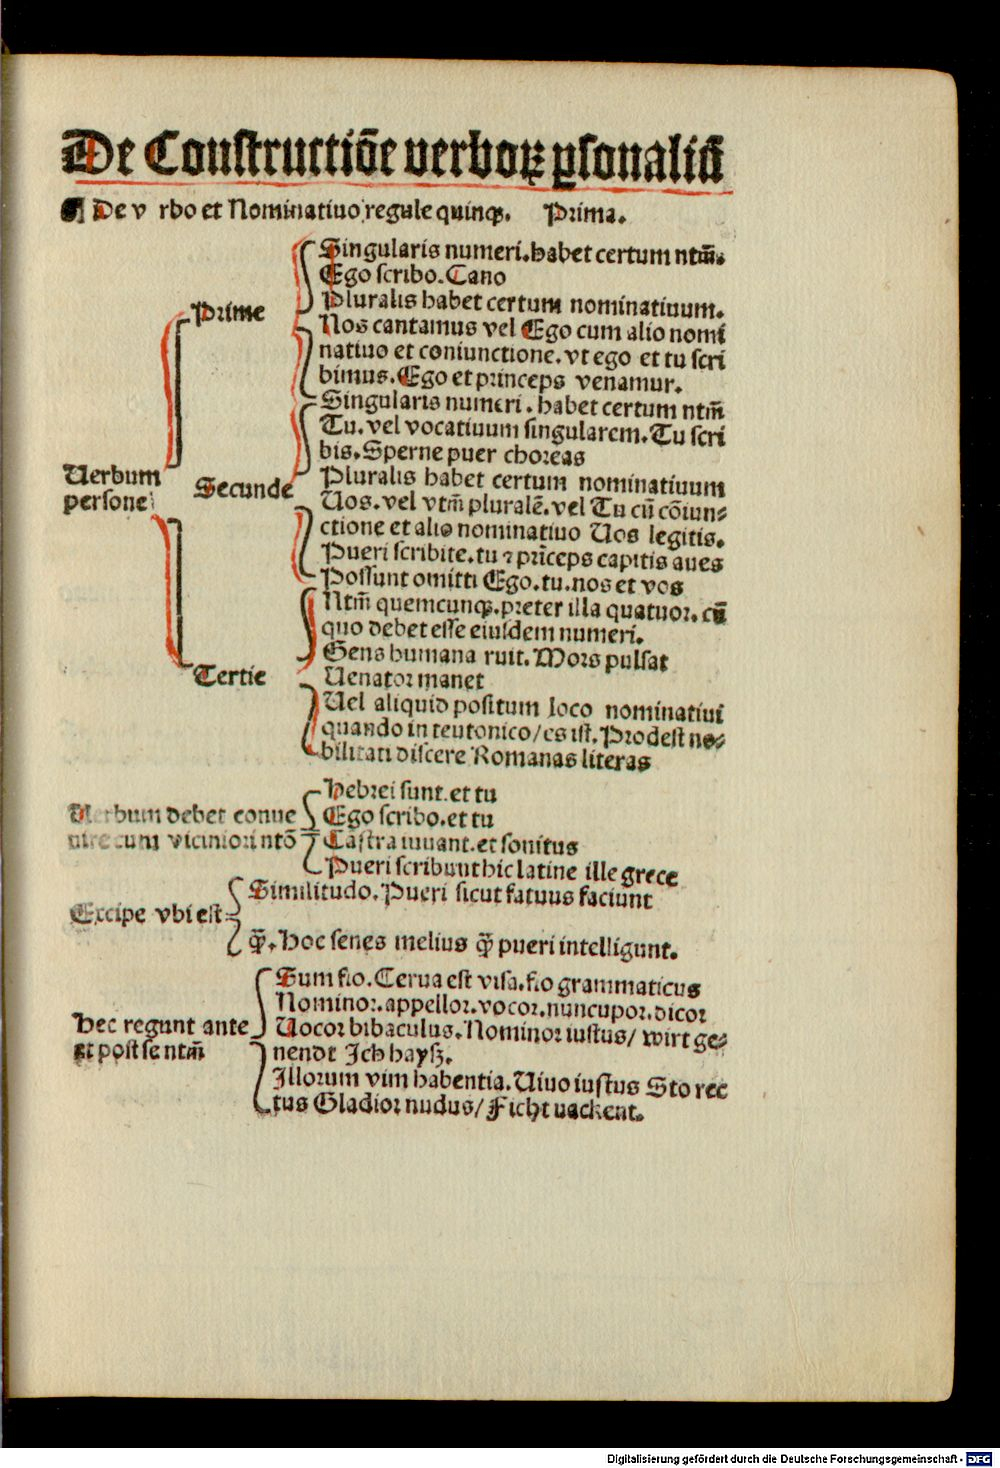 De Constructiōe verboꝝ ꝑsonaliū
¶ De v rbo et Nominatiuo regule quinqꝫ. Prima.
Prime
Singularis numeri. habet certum ntm̄.
Ego scribo. Cano
Pluralis habet certum nominatiuum.
Nos cantamus vel Ego cum alio nomi
natiuo et coniunctione. vt ego et tu scri
bimus. Ego et princeps venamur.
Uerbum
persone
Secunde
Singularis numeri. habet certum ntm̄
Tu. vel vocatiuum singularem. Tu scri
bis. Sperne puer choreas
Pluralis habet certum nominatiuum
Uos. vel vtm̄ pluralē. vel Tu cū cōiun⸗
ctione et alio nominatiuo Uos legitis.
Pueri scribite. tu ⁊ prīceps capitis aues
Possunt omitti Ego. tu. nos et vos
Tertie
Ntm̄ quemcunqꝫ. preter illa quatuor. cū
quo debet esse eiusdem numeri.
Gens humana ruit. Mors pulsat
Uenator manet
Uel aliquid positum loco nominatiui
quando in teutonico/ es ist. Prodest no⸗
bilitati discere Romanas literas
Uerbum debet conue
nire cum viciniori ntō
Hebrei sunt. et tu
Ego scribo. et tu
Castra iuuant. et sonitus
Pueri scribunt hic latine ille grece
Excipe vbi est
Similitudo. Pueri sicut fatuus faciunt
q̄ꝫ. Hoc senes melius q̄ꝫ pueri intelligunt.
Hec regunt ante
et post se ntm̄
Sum fio. Cerua est visa. fio grammaticus
Nominor. appellor. vocor. nuncupor. dicor
Uocor bibaculus. Nominor iustus/ wirt ge⸗
nendt Ich hayß.
Illorum vim habentia. Uiuo iustus Sto rec
tus Gladior nudus/ Ficht nackent.
Digitalisierung gefördert durch die Deutsche Forschungsgemeinschaft - DFG